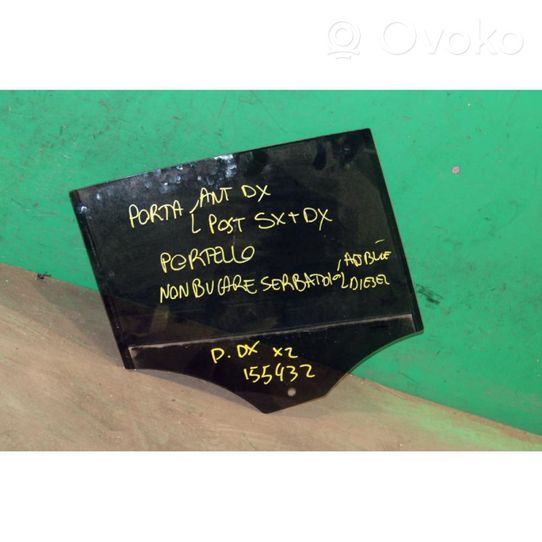 Ovoko
PORTA ANT DX
POST SX+DX
PORTELLO
NON BUCARE SERBATOIO ADBLUE
DIESEL
P. DX x2
155432